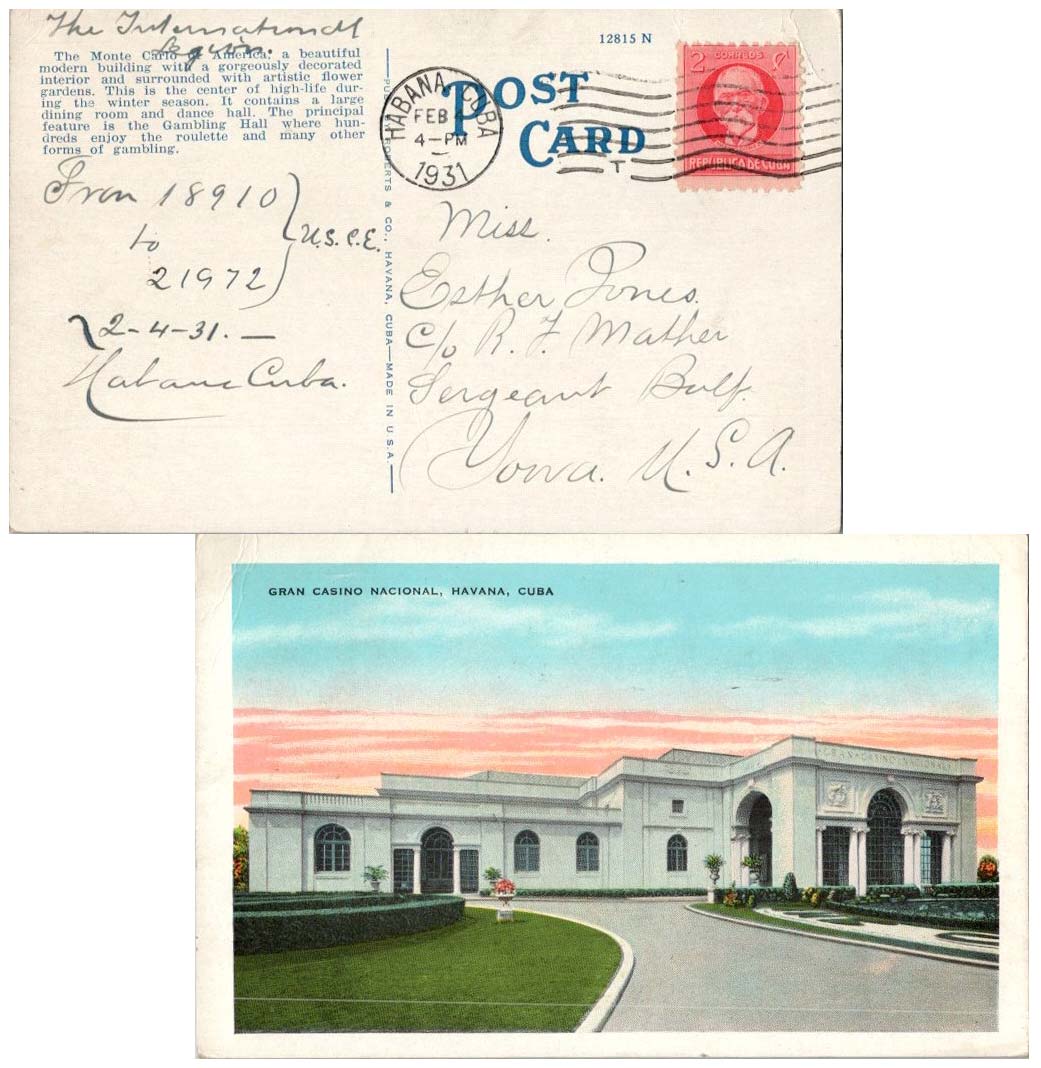 The International
Legion.
The Monte Carlo of America, a beautiful
modern building with a gorgeously decorated
interior and surrounded with artistic flower
gardens. This is the center of high-life dur-
ing the winter season. It contains a large
dining room and dance hall. The principal
feature is the Gambling Hall where hun-
dreds enjoy the roulette and many other
forms of gambling.
From 18910
to
21972
U.S.C.E.
2-4-31. —
Habana Cuba.
ROBERTS & CO., HAVANA, CUBA—MADE IN U.S.A.
12815 N
POST
CARD
HABANA, CUBA
FEB 4
4-PM
1931
T
CORREOS
2 ¢
REPUBLICA DE CUBA
Miss.
Esther Jones.
c/o R. F. Mather
Sergeant Bulf.
Iowa. U.S.A.
GRAN CASINO NACIONAL, HAVANA, CUBA
GRAN·CASINO·NACIONAL